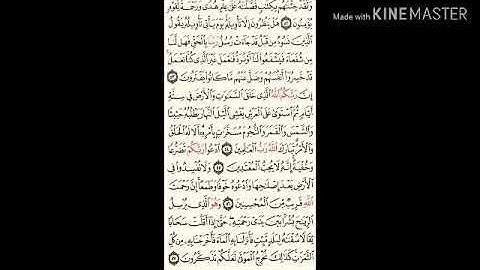 Made with KINEMASTER
وَلَقَدْ جِئْنَٰهُم بِكِتَٰبٍ فَصَّلْنَٰهُ عَلَىٰ عِلْمٍ هُدًى وَرَحْمَةً لِّقَوْمٍ
يُؤْمِنُونَ ٥٢ هَلْ يَنظُرُونَ إِلَّا تَأْوِيلَهُۥ يَوْمَ يَأْتِى تَأْوِيلُهُۥ يَقُولُ
ٱلَّذِينَ نَسُوهُ مِن قَبْلُ قَدْ جَآءَتْ رُسُلُ رَبِّنَا بِٱلْحَقِّ فَهَل لَّنَا
مِن شُفَعَآءَ فَيَشْفَعُوا۟ لَنَآ أَوْ نُرَدُّ فَنَعْمَلَ غَيْرَ ٱلَّذِى كُنَّا نَعْمَلُ
قَدْ خَسِرُوٓا۟ أَنفُسَهُمْ وَضَلَّ عَنْهُم مَّا كَانُوا۟ يَفْتَرُونَ ٥٣
إِنَّ رَبَّكُمُ ٱللَّهُ ٱلَّذِى خَلَقَ ٱلسَّمَٰوَٰتِ وَٱلْأَرْضَ فِى سِتَّةِ
أَيَّامٍ ثُمَّ ٱسْتَوَىٰ عَلَى ٱلْعَرْشِ يُغْشِى ٱلَّيْلَ ٱلنَّهَارَ يَطْلُبُهُۥ حَثِيثًا
وَٱلشَّمْسَ وَٱلْقَمَرَ وَٱلنُّجُومَ مُسَخَّرَٰتٍۭ بِأَمْرِهِۦٓ أَلَا لَهُ ٱلْخَلْقُ
وَٱلْأَمْرُ تَبَارَكَ ٱللَّهُ رَبُّ ٱلْعَٰلَمِينَ ٥٤ ٱدْعُوا۟ رَبَّكُمْ تَضَرُّعًا
وَخُفْيَةً إِنَّهُۥ لَا يُحِبُّ ٱلْمُعْتَدِينَ ٥٥ وَلَا تُفْسِدُوا۟ فِى
ٱلْأَرْضِ بَعْدَ إِصْلَٰحِهَا وَٱدْعُوهُ خَوْفًا وَطَمَعًا إِنَّ رَحْمَتَ
ٱللَّهِ قَرِيبٌ مِّنَ ٱلْمُحْسِنِينَ ٥٦ وَهُوَ ٱلَّذِى يُرْسِلُ
ٱلرِّيَٰحَ بُشْرًۢا بَيْنَ يَدَىْ رَحْمَتِهِۦ حَتَّىٰٓ إِذَآ أَقَلَّتْ سَحَابًا
ثِقَالًا سُقْنَٰهُ لِبَلَدٍ مَّيِّتٍ فَأَنزَلْنَا بِهِ ٱلْمَآءَ فَأَخْرَجْنَا بِهِۦ مِن كُلِّ
ٱلثَّمَرَٰتِ كَذَٰلِكَ نُخْرِجُ ٱلْمَوْتَىٰ لَعَلَّكُمْ تَذَكَّرُونَ ٥٧